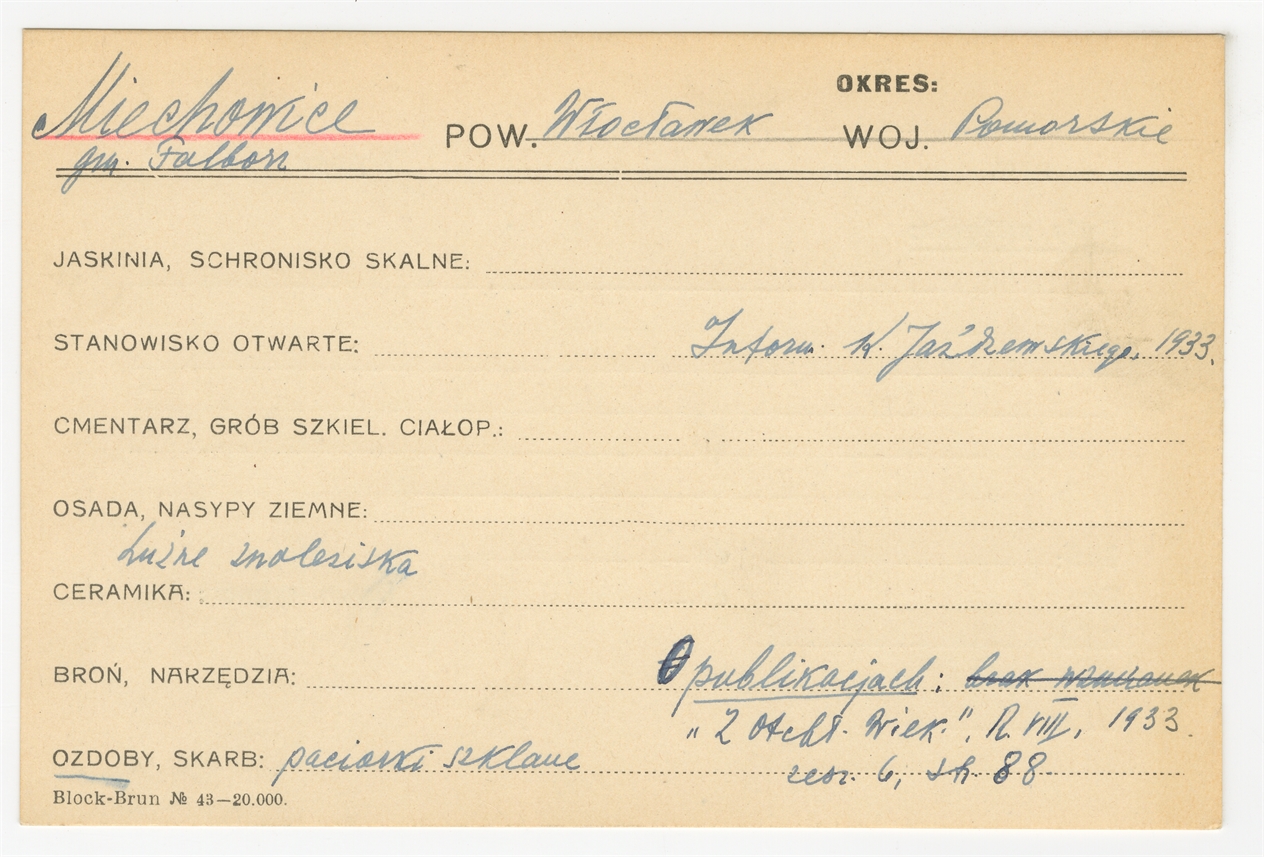 OKRES:
Miechowice POW. Włocławek WOJ. Pomorskie
gm. Falborz
JASKINIA, SCHRONISKO SKALNE:
STANOWISKO OTWARTE: Inform. K. Jażdżewskiego, 1933.
CMENTARZ, GRÓB SZKIEL. CIAŁOP.:
OSADA, NASYPY ZIEMNE:
Luźne znaleziska
CERAMIKA:
BROŃ, NARZĘDZIA: O publikacjach: brak wzmianek
"Z Otchł. Wiek." R. VIII, 1933.
OZDOBY, SKARB: paciorki szklane zesz. 6, str. 88
Block-Brun № 43—20.000.